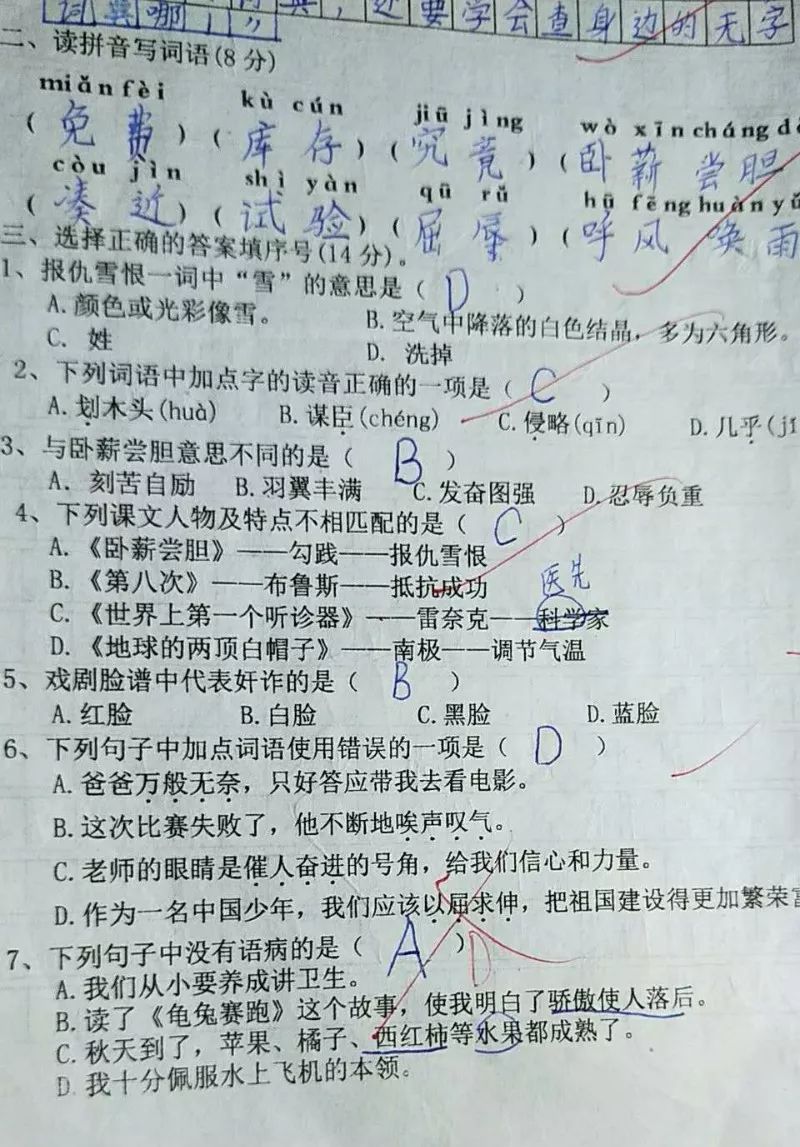 词典哪,”
典,还要学会查身边的无字
二、读拼音写词语(8分)
miǎn fèi kù cún jiū jìng wò xīn cháng d
(免费)(库存)(究竟)(卧薪尝胆
còu jìn shì yàn qū rǔ hū fēng huàn yǔ
(凑近)(试验)(屈辱)(呼风唤雨
三、选择正确的答案填序号(14分)。
1、报仇雪恨一词中“雪”的意思是( D )
A.颜色或光彩像雪。 B.空气中降落的白色结晶,多为六角形。
C. 姓 D. 洗掉
2、下列词语中加点字的读音正确的一项是( C )
A.划木头(huà) B.谋臣(chéng) C.侵略(qīn) D.几乎(jī
3、与卧薪尝胆意思不同的是( B )
A. 刻苦自励 B.羽翼丰满 C.发奋图强 D.忍辱负重
4、下列课文人物及特点不相匹配的是( C )
A.《卧薪尝胆》——勾践——报仇雪恨
B.《第八次》——布鲁斯——抵抗成功
医先
C.《世界上第一个听诊器》——雷奈克——科学家
D.《地球的两顶白帽子》——南极——调节气温
5、戏剧脸谱中代表奸诈的是( B )
A.红脸 B.白脸 C.黑脸 D.蓝脸
6、下列句子中加点词语使用错误的一项是( D )
A.爸爸万般无奈,只好答应带我去看电影。
B.这次比赛失败了,他不断地唉声叹气。
C.老师的眼睛是催人奋进的号角,给我们信心和力量。
D.作为一名中国少年,我们应该以屈求伸,把祖国建设得更加繁荣富
7、下列句子中没有语病的是( A ) D
A.我们从小要养成讲卫生。
B.读了《龟兔赛跑》这个故事,使我明白了骄傲使人落后。
C.秋天到了,苹果、橘子、西红柿等水果都成熟了。
D.我十分佩服水上飞机的本领。